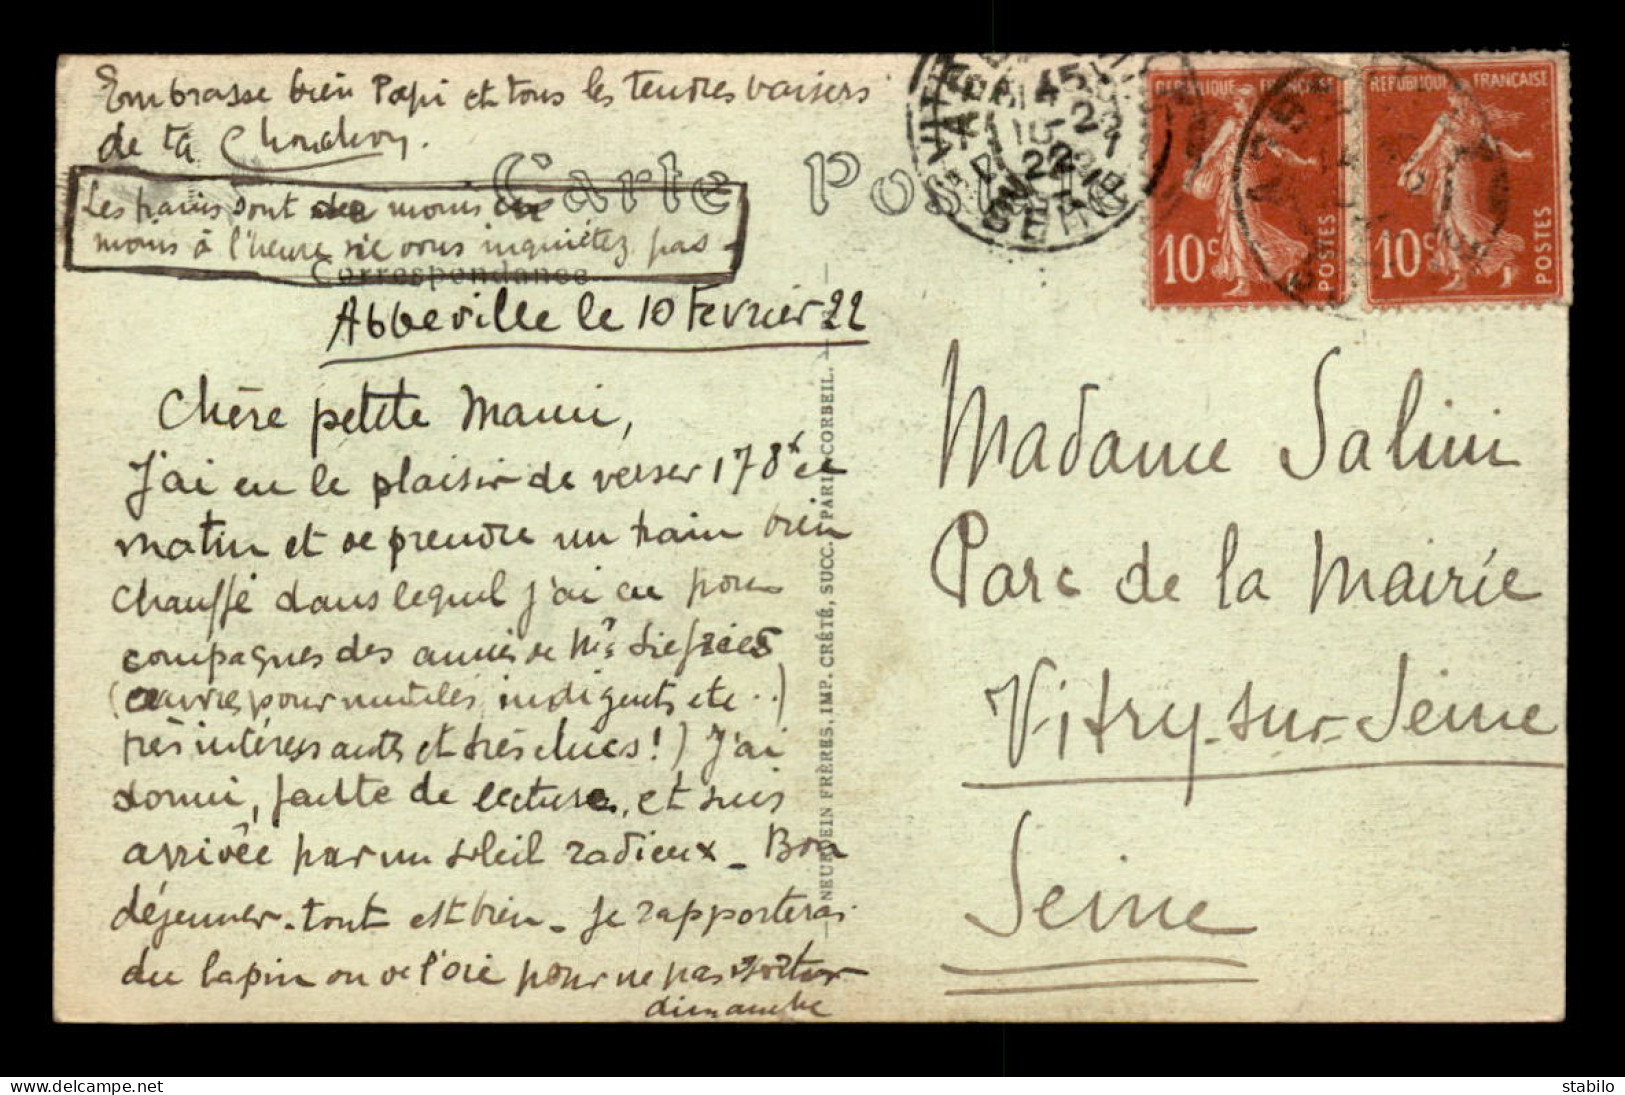 Embrasse bien Papi et tous les tendres baisers
de ta Chouchou.
Carte Postale
Les trains sont moins
moins à l'heure ne vous inquiétez pas
Correspondance
Abbeville le 10 Fevrier 22
Chère petite Mami,
J'ai eu le plaisir de verser 178 ce
matin et de prendre un train bien
chauffé dans lequel j'ai eu pour
compagnes des amies de
(œuvres pour mutilés, indigents etc..)
très intéressants et très chics!) J'ai
dormi, faute de lecture, et suis
arrivée par un soleil radieux - Bon
déjeuner - tout est bien - Je rapporterai
du lapin ou de l'oie pour ne pas sortir
dimanche
NEURDEIN FRÈRES, IMP. CRÉTÉ, SUCC. PARIS-CORBEIL.
VITRY
SEINE
22
RÉPUBLIQUE FRANÇAISE
10c
POSTES
RÉPUBLIQUE FRANÇAISE
10c
POSTES
Madame Salini
Parc de la Mairie
Vitry-sur-Seine
Seine
https://www.delcampe.net
stabilo